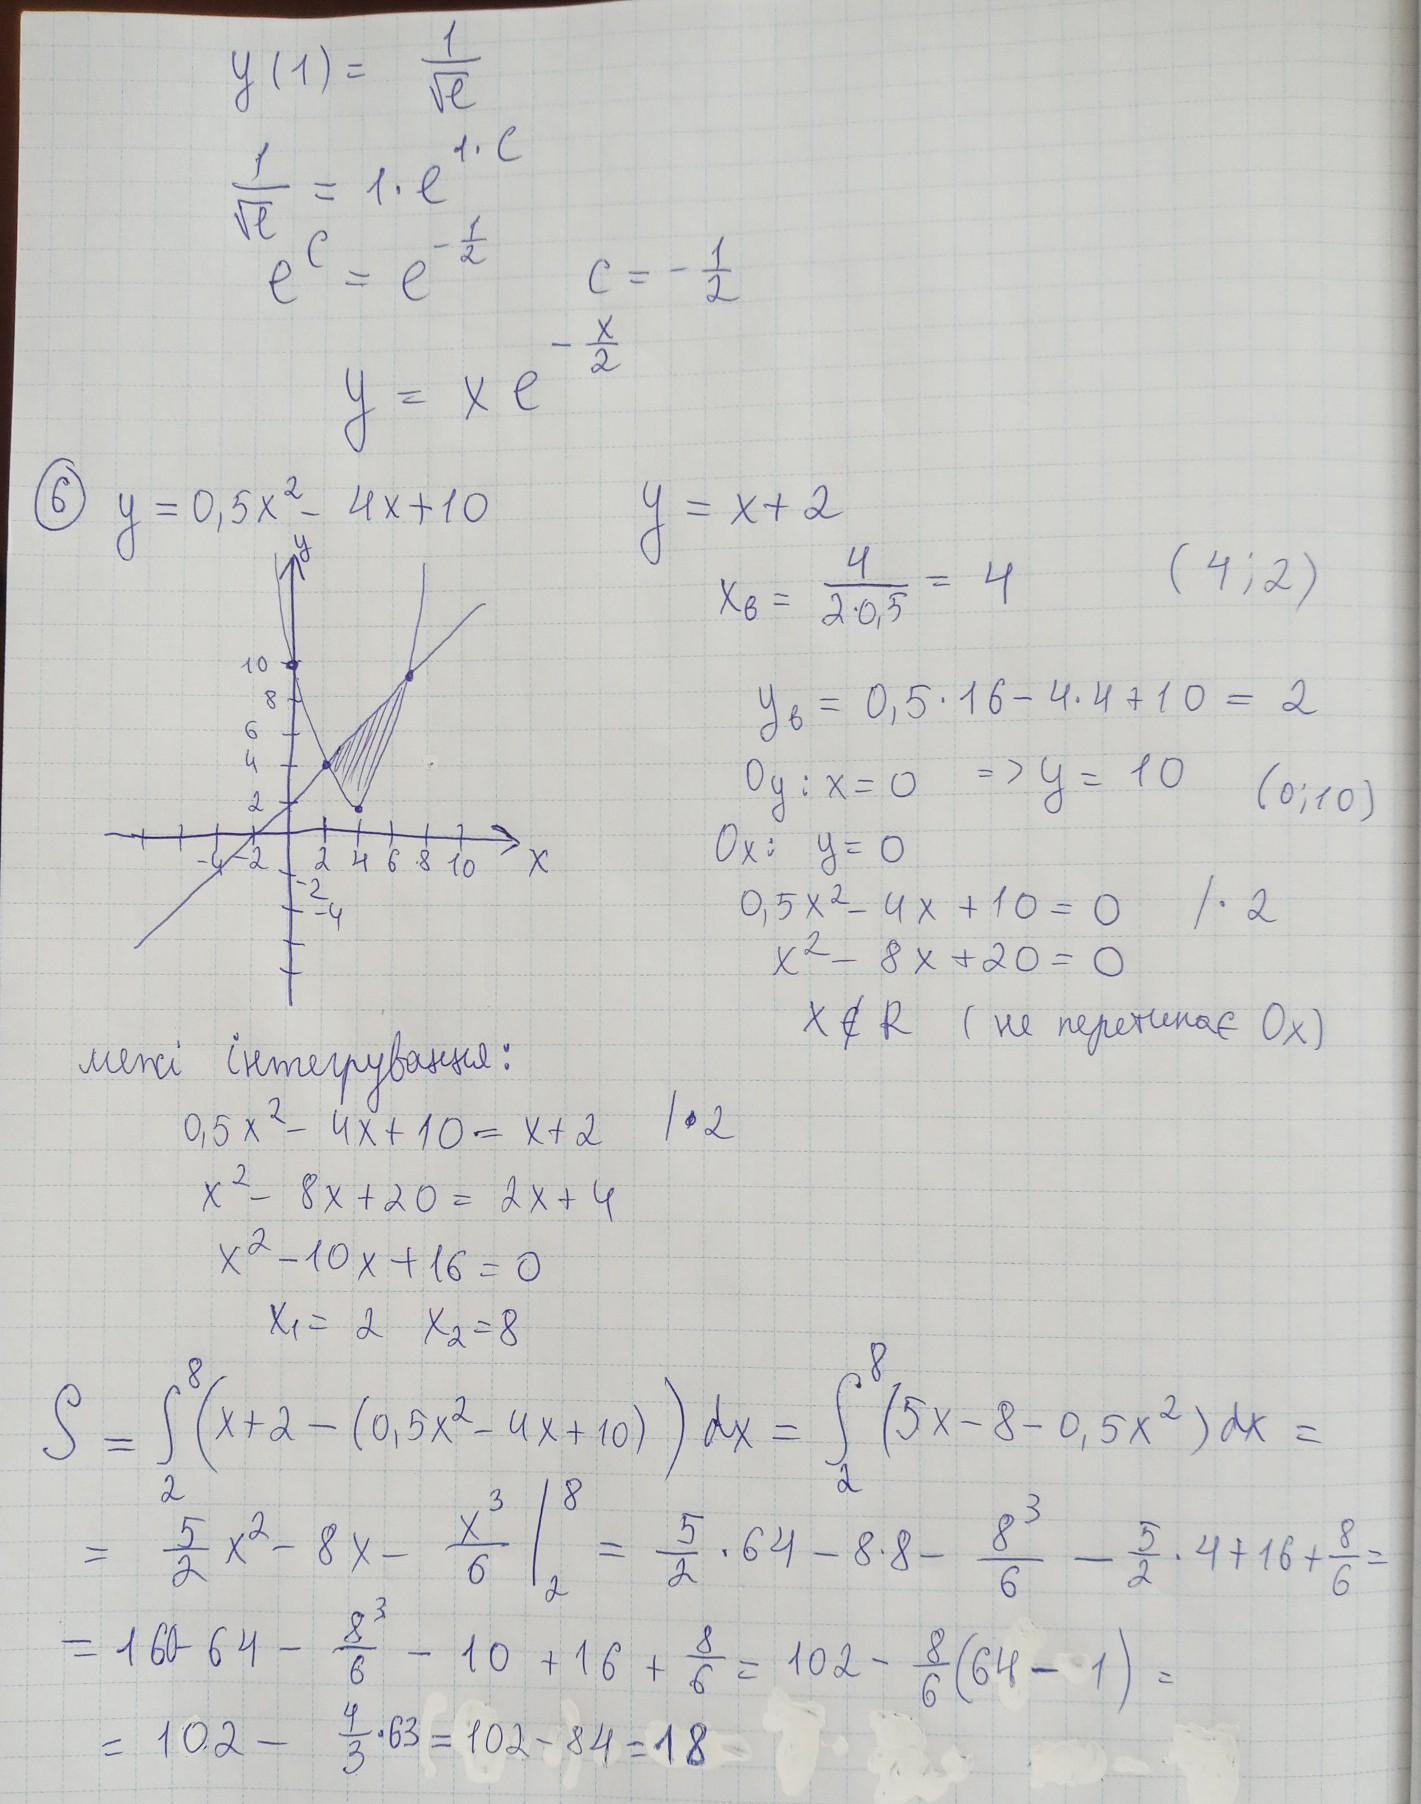 y(1) = 1/√e
1/√e = 1·e^(1·C)
e^C = e^(-1/2)   C = -1/2
y = x e^(-x/2)
⑥ y = 0,5x² - 4x + 10   y = x + 2
x_в = 4/(2·0,5) = 4   (4;2)
y_в = 0,5·16 - 4·4 + 10 = 2
Oy: x = 0 => y = 10   (0;10)
Ox: y = 0
0,5x² - 4x + 10 = 0   /·2
x² - 8x + 20 = 0
x ∉ R (не перетинає Ox)
y
10
8
6
4
2
-4 -2 2 4 6 8 10 x
-2
-4
межі інтегрування:
0,5x² - 4x + 10 = x + 2   /·2
x² - 8x + 20 = 2x + 4
x² - 10x + 16 = 0
x₁ = 2   x₂ = 8
S = ∫₂⁸ (x + 2 - (0,5x² - 4x + 10)) dx = ∫₂⁸ (5x - 8 - 0,5x²) dx =
= 5/2 x² - 8x - x³/6 |₂⁸ = 5/2·64 - 8·8 - 8³/6 - 5/2·4 + 16 + 8/6 =
= 160 - 64 - 8³/6 - 10 + 16 + 8/6 = 102 - 8/6 (64 - 1) =
= 102 - 4/3·63 = 102 - 84 = 18